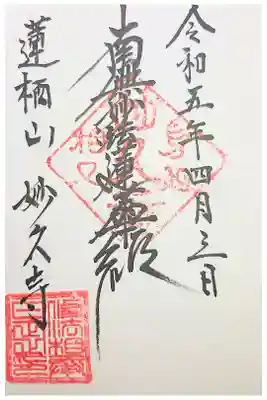 令和五年四月三日
南無妙法蓮華経
蓮柄山 妙久寺